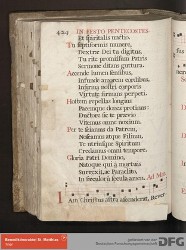 IN FESTO PENTECOSTES
Et spiritalis unctio.
Tu septiformis munere,
Dextræ Dei tu digitus,
Tu rite promissum Patris
Sermone ditans guttura.
Accende lumen sensibus,
Infunde amorem cordibus,
Infirma nostri corporis
Virtute firmans perpeti.
Hostem repellas longius
Pacemque dones protinus:
Ductore sic te prævio
Vitemus omne noxium.
Per te sciamus da Patrem,
Noscamus atque Filium,
Te utriusque Spiritum
Credamus omni tempore.
Gloria Patri Domino,
Natoque qui a mortuis
Surrexit, ac Paraclito,
In sæculorum sæcula. amen. Ad
IAm Christus astra ascenderat, Rever
gefördert von der
Deutschen Forschungsgemeinschaft
DFG